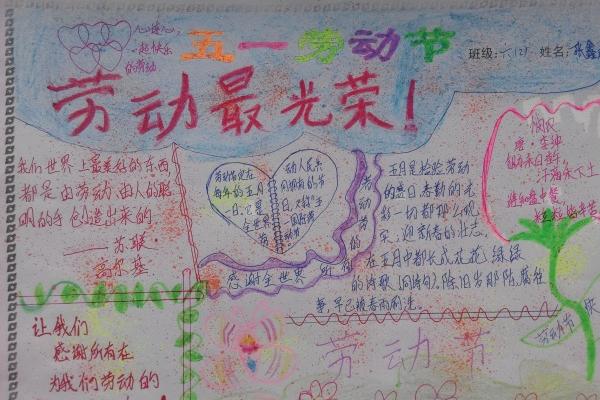 心连心,
一起快乐
的劳动
五一劳动节
班级:六(2) 姓名:张鑫
劳动最光荣!
我们世界上最美好的东西
都是由劳动、由人的聪
明的手创造出来的
——苏联
高尔基
劳动节定在
每年的五月
一日,它是
全世界
劳
动人民共
同拥有的节
日,又称"五一
国际劳
动节"
感谢全世界所有的劳动者
五月是检验劳动
的
一切都那么现
实,迎新春的壮志,
在五月中都长成花花绿绿
的诗歌
早已被春雨刷洗。
悯农
唐:李绅
锄禾日当午,
汗滴禾下土
谁知盘中餐
粒粒皆辛苦
让我们
感谢所有在
为我们劳动的
劳动节
劳动节
快